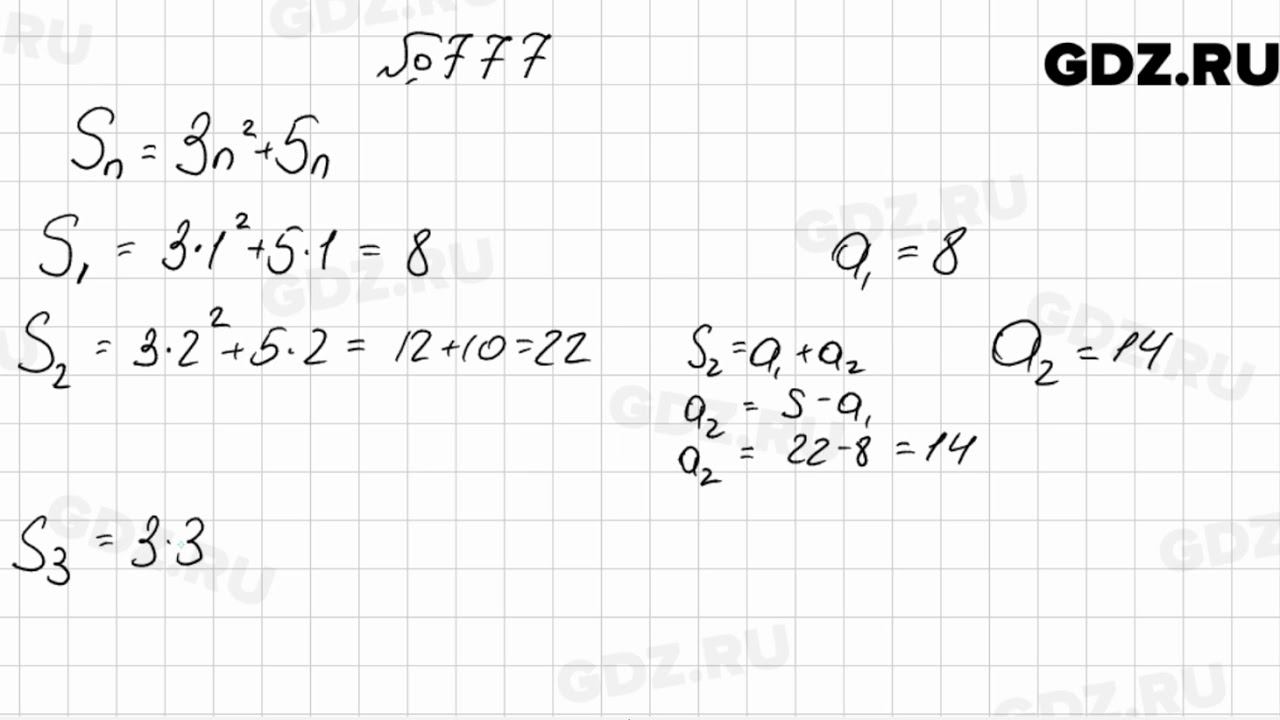 №777
GDZ.RU
Sₙ = 3n²+5n
S₁ = 3·1²+5·1 = 8
a₁ = 8
S₂ = 3·2²+5·2 = 12+10=22
S₂=a₁+a₂
a₂ = 14
a₂ = S-a₁
a₂ = 22-8 = 14
S₃ = 3·3